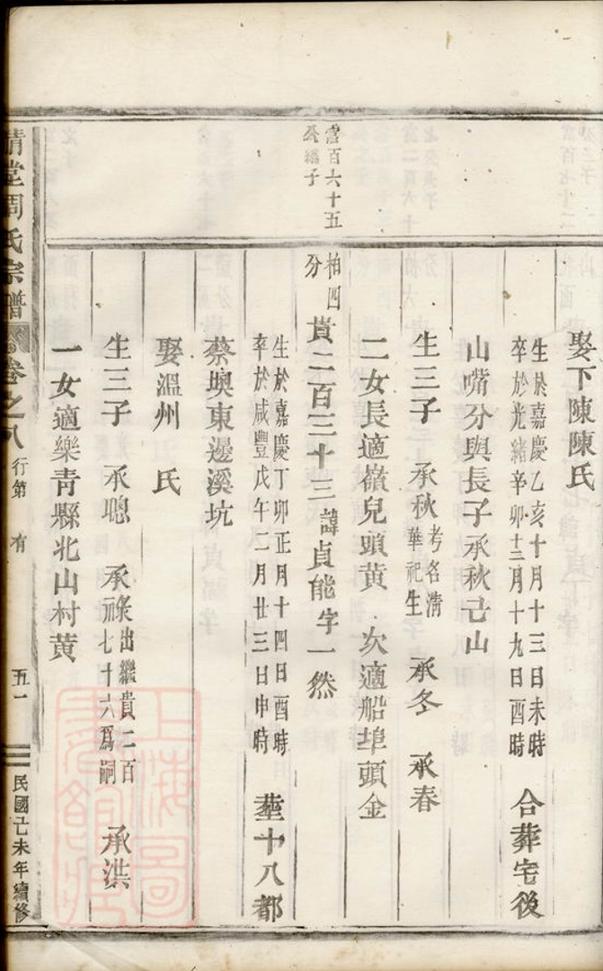 娶下陳陳氏
生於嘉慶乙亥十月十三日未時
卒於光緒辛卯十二月十九日酉時
合葬宅後
山嘴分與長子承秋己山
生三子 承秋
考名清
華祀生
承冬 承春
二女長適嶺兒頭黃 次適船埠頭金
雲百六十五
公繼子
柏四
分
貴二百三十三諱貞能字一然
生於嘉慶丁卯正月十四日酉時
卒於咸豐戊午二月廿三日申時
塟十八都
蔡墺東邊溪坑
娶溫州 氏
生三子 承聰 承祿
出繼貴二百
七十六爲嗣
承洪
一女適樂青縣北山村黃
堂周氏宗譜
卷之八
行第 有
五一
民國己未年續修
上海圖書館藏